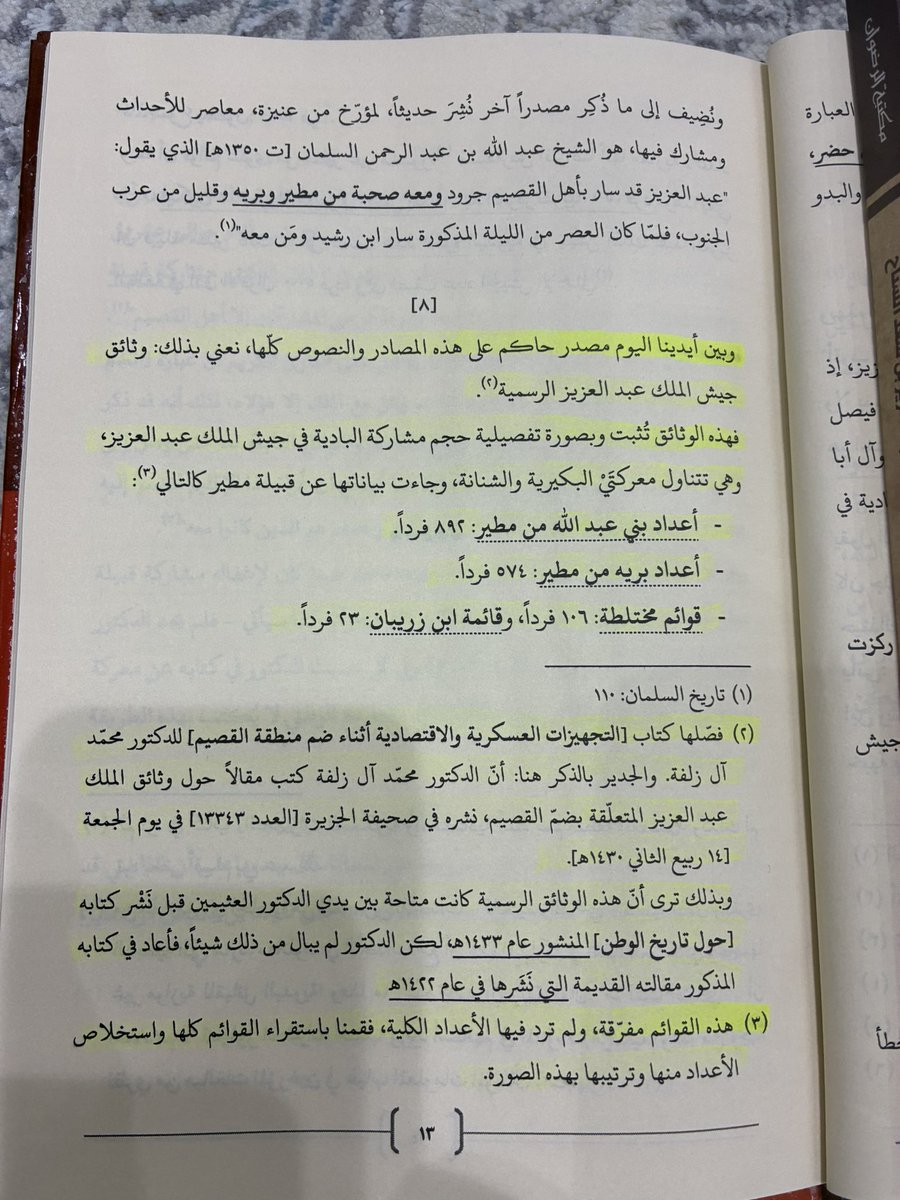 ونُضِيف إلى ما ذُكِر مصدراً آخر نُشِرَ حديثاً، لمؤرّخ من عنيزة، معاصر للأحداث
ومشارك فيها، هو الشيخ عبد الله بن عبد الرحمن السلمان [ت ١٣٥٠هـ] الذي يقول:
"عبد العزيز قد سار بأهل القصيم جرود ومعه صحبة من مطير وبريه وقليل من عرب
الجنوب، فلمّا كان العصر من الليلة المذكورة سار ابن رشيد ومَن معه"(١).
[٨]
وبين أيدينا اليوم مصدر حاكم على هذه المصادر والنصوص كلّها، نعني بذلك: وثائق
جيش الملك عبد العزيز الرسمية(٢).
فهذه الوثائق تُثبت وبصورة تفصيلية حجم مشاركة البادية في جيش الملك عبد العزيز،
وهي تتناول معركتَيْ البكيرية والشنانة، وجاءت بياناتها عن قبيلة مطير كالتالي(٣):
- أعداد بني عبد الله من مطير: ٨٩٢ فرداً.
- أعداد بريه من مطير: ٥٧٤ فرداً.
- قوائم مختلطة: ١٠٦ فرداً، وقائمة ابن زريبان: ٢٣ فرداً.
(١) تاريخ السلمان: ١١٠
(٢) فصّلها كتاب [التجهيزات العسكرية والاقتصادية أثناء ضم منطقة القصيم] للدكتور محمّد
آل زلفة. والجدير بالذكر هنا: أنّ الدكتور محمّد آل زلفة كتب مقالاً حول وثائق الملك
عبد العزيز المتعلّقة بضمّ القصيم، نشره في صحيفة الجزيرة [العدد ١٣٣٤٣] في يوم الجمعة
[١٤ ربيع الثاني ١٤٣٠هـ].
وبذلك ترى أنّ هذه الوثائق الرسمية كانت متاحة بين يدي الدكتور العثيمين قبل نَشْر كتابه
[حول تاريخ الوطن] المنشور عام ١٤٣٣هـ، لكن الدكتور لم يبال من ذلك شيئاً، فأعاد في كتابه
المذكور مقالته القديمة التي نَشَرها في عام ١٤٢٢هـ
(٣) هذه القوائم مفرّقة، ولم ترد فيها الأعداد الكلية، فقمنا باستقراء القوائم كلها واستخلاص
الأعداد منها وترتيبها بهذه الصورة.
١٣
العبارة
حضر،
والبدو
زيز، إذ
فيصل
وآل أبا
ادية في
ركزت
جيش
خطأ